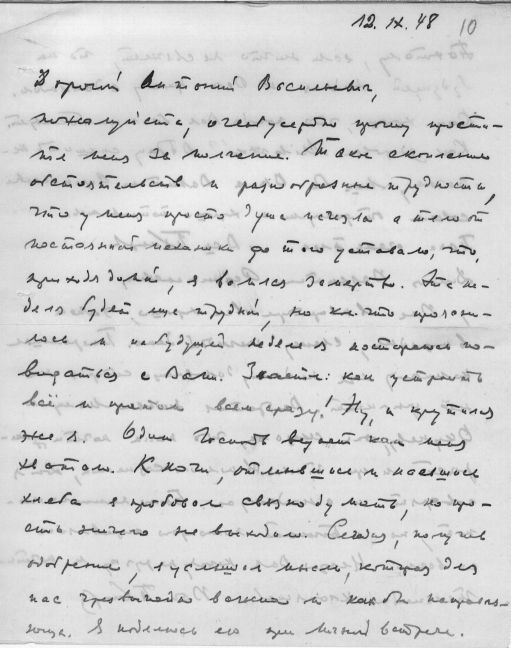 12.IX.48 10
Дорогой Антоний Васильевич,
пожалуйста, очень усердно прошу прости-
те меня за молчание. Такое скопление
обстоятельств и разнообразные трудности,
что у меня просто душа исчезла а тело от
постоянной механики до того уставало, что,
приходя домой, я валился замертво. Эта не-
деля будет еще трудной, но кое что прояснилось
и на будущей неделе я постараюсь по-
видаться с Вами. Знаете: как устроить
всё и притом всем сразу! Ну, и крутился
же я. Один Господь ведает как меня
хватало. К ночи, и наевшись
хлеба я пробовал связно думать, но про-
сто ничего не выходило. Сегодня, получив
одобрение, я услышал мысль, которая для
нас чрезвычайно важна и как бы направля-
юща. Я поделюсь ею при личной встрече.